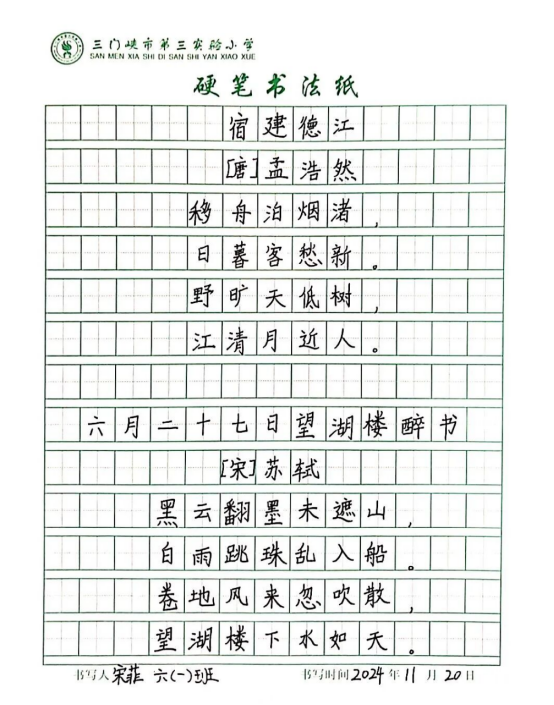 三门峡市第三实验小学
SAN MEN XIA SHI DI SAN SHI YAN XIAO XUE
硬笔书法纸
宿建德江
[唐]孟浩然
移舟泊烟渚,
日暮客愁新。
野旷天低树,
江清月近人。
六月二十七日望湖楼醉书
[宋]苏轼
黑云翻墨未遮山,
白雨跳珠乱入船。
卷地风来忽吹散,
望湖楼下水如天。
书写人宋菲 六(一)班 书写时间2024年11月20日